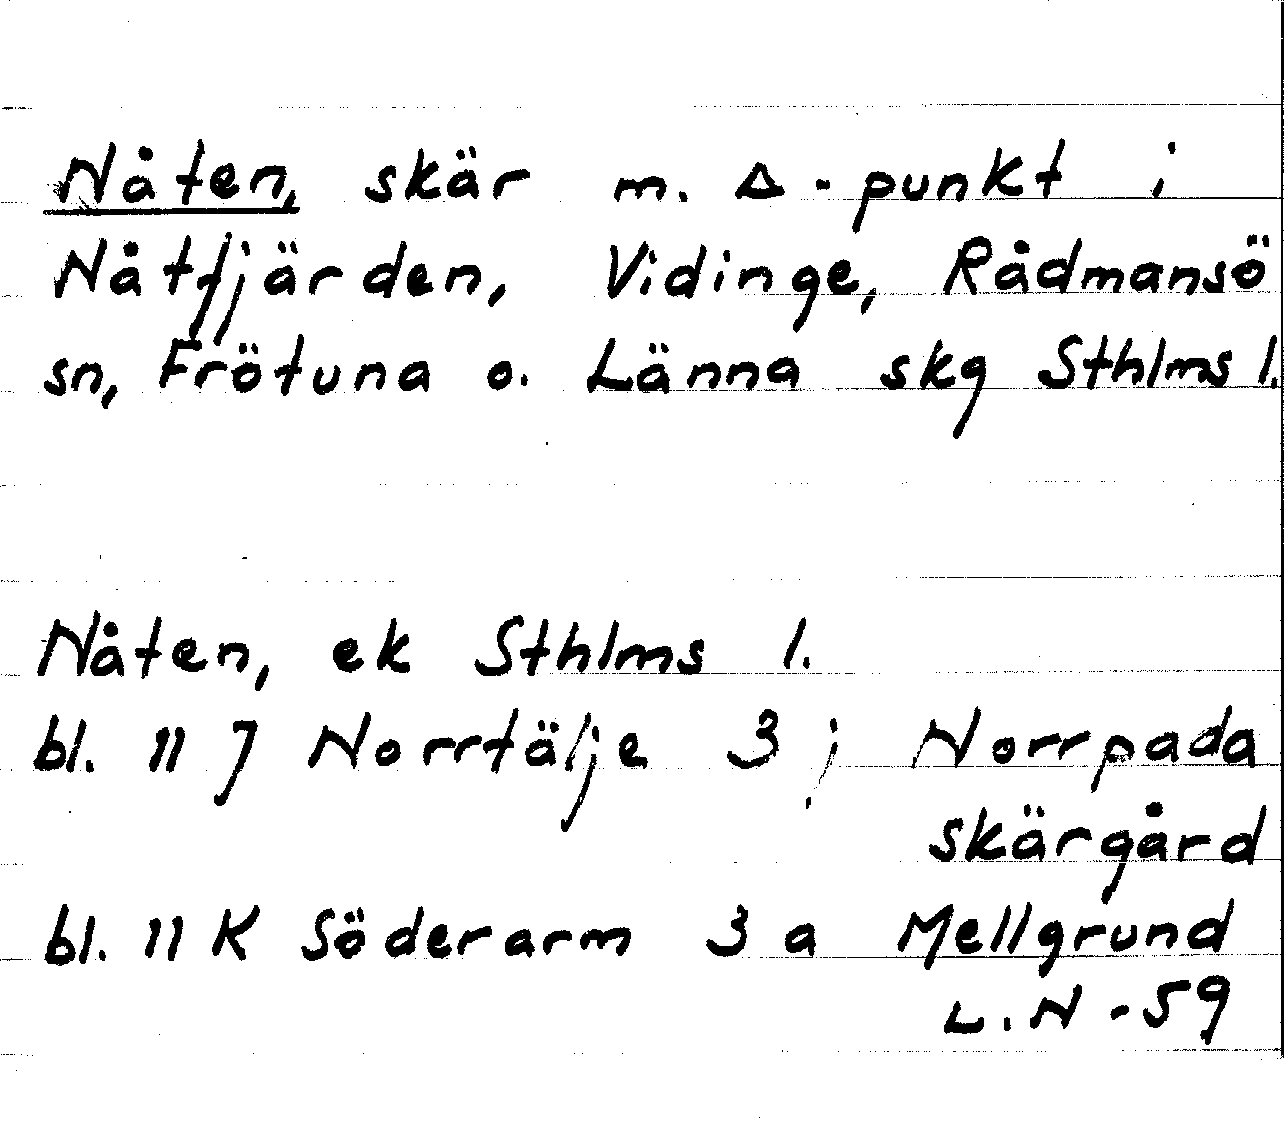 Nåten, skär m. Δ-punkt i
Nåtfjärden, Vidinge, Rådmansö
sn, Frötuna o. Länna skg Sthlms l.
Nåten, ek Sthlms l.
bl. 11 J Norrtälje 3 j Norrpada
skärgård
bl. 11 K Söderarm 3 a Mellgrund
L.N -59